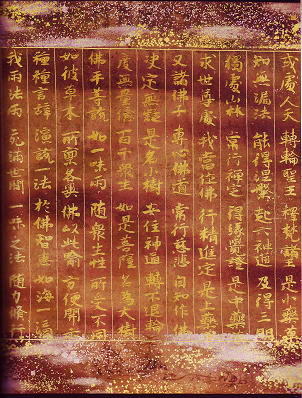 或處人天 轉輪聖王 釋梵諸王 是小藥草
知無漏法 能得涅槃 起六神通 及得三明
獨處山林 常行禪定 得緣覺證 是中藥草
求世尊處 我當作佛 行精進定 是上藥草
又諸佛子 專心佛道 常行慈悲 自知作佛
決定無疑 是名小樹 安住神通 轉不退輪
度無量億 百千眾生 如是菩薩 名為大樹
佛平等說 如一味雨 隨眾生性 所受不同
如彼草木 所稟各異 佛以此喻 方便開示
種種言辭 演說一法 於佛智慧 如海一渧
我雨法雨 充滿世間 一味之法 隨力修行